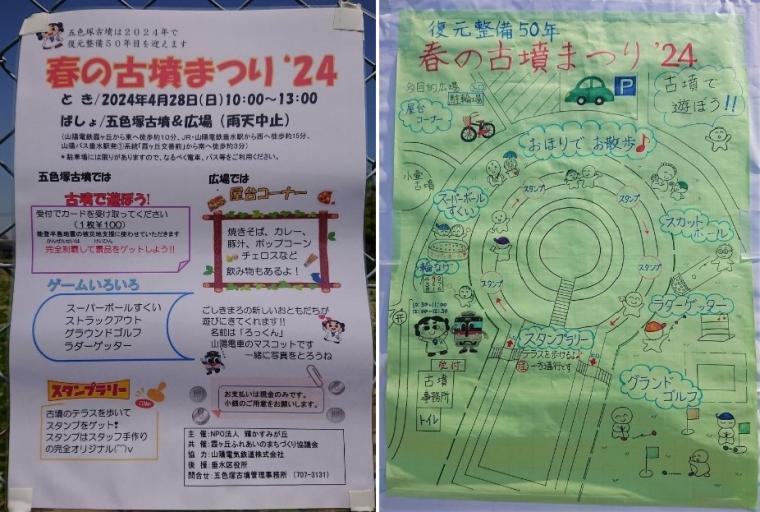 五色塚古墳は2024年で
復元整備50年目を迎えます
春の古墳まつり '24
とき/2024年4月28日(日)10:00～13:00
ばしょ/五色塚古墳&広場（雨天中止）
(山陽電鉄霞ヶ丘から東へ徒歩約10分、JR・山陽電鉄垂水駅から西へ徒歩約15分、
山陽バス垂水駅発①系統「霞ヶ丘交番前」から南へ徒歩約3分)
*駐車場には限りがありますので、なるべく電車、バス等をご利用ください。
五色塚古墳では
古墳で遊ぼう!
受付でカードを受け取ってください
(1枚¥100)
能登半島地震の被災地支援に使わせていただきます
かんぜんせいは けいひん
完全制覇して景品をゲットしよう!!
ゲームいろいろ
スーパーボールすくい
ストラックアウト
グラウンドゴルフ
ラダーゲッター
スタンプラリー
古墳のテラスを歩いて
スタンプをゲット!
スタンプはスタッフ手作り
の完全オリジナル(⌒)v
広場では
屋台コーナー
焼きそば、カレー、
豚汁、ポップコーン
チェロスなど
飲み物もあるよ!
ごしきまろの新しいおともだちが
遊びにきてくれます!!
名前は「ろっくん」
山陽電車のマスコットです
一緒に写真をとろうね
お支払いは現金のみです。
小銭のご用意をお願いします。
主 催:NPO法人 輝かすみが丘
共 催:霞ヶ丘ふれあいのまちづくり協議会
協 力:山陽電気鉄道株式会社
後 援:垂水区役所
問合せ:五色塚古墳管理事務所 (707-3131)
復元整備50年
春の古墳まつり '24
多目的広場
駐輪場
P
古墳で
遊ぼう!!
屋台
コーナー
おほりでお散歩♪
小壷
古墳
スタンプ
スタンプ
スーパーボール
すくい
スカット
ボール
輪なげ
スタンプ
スタンプ
10:30-11:00
12:00-12:30
ラダーゲッター
スタンプラリー
テラスを歩ける♪
一方通行です
受付
古墳
事務所
トイレ
グランド
ゴルフ